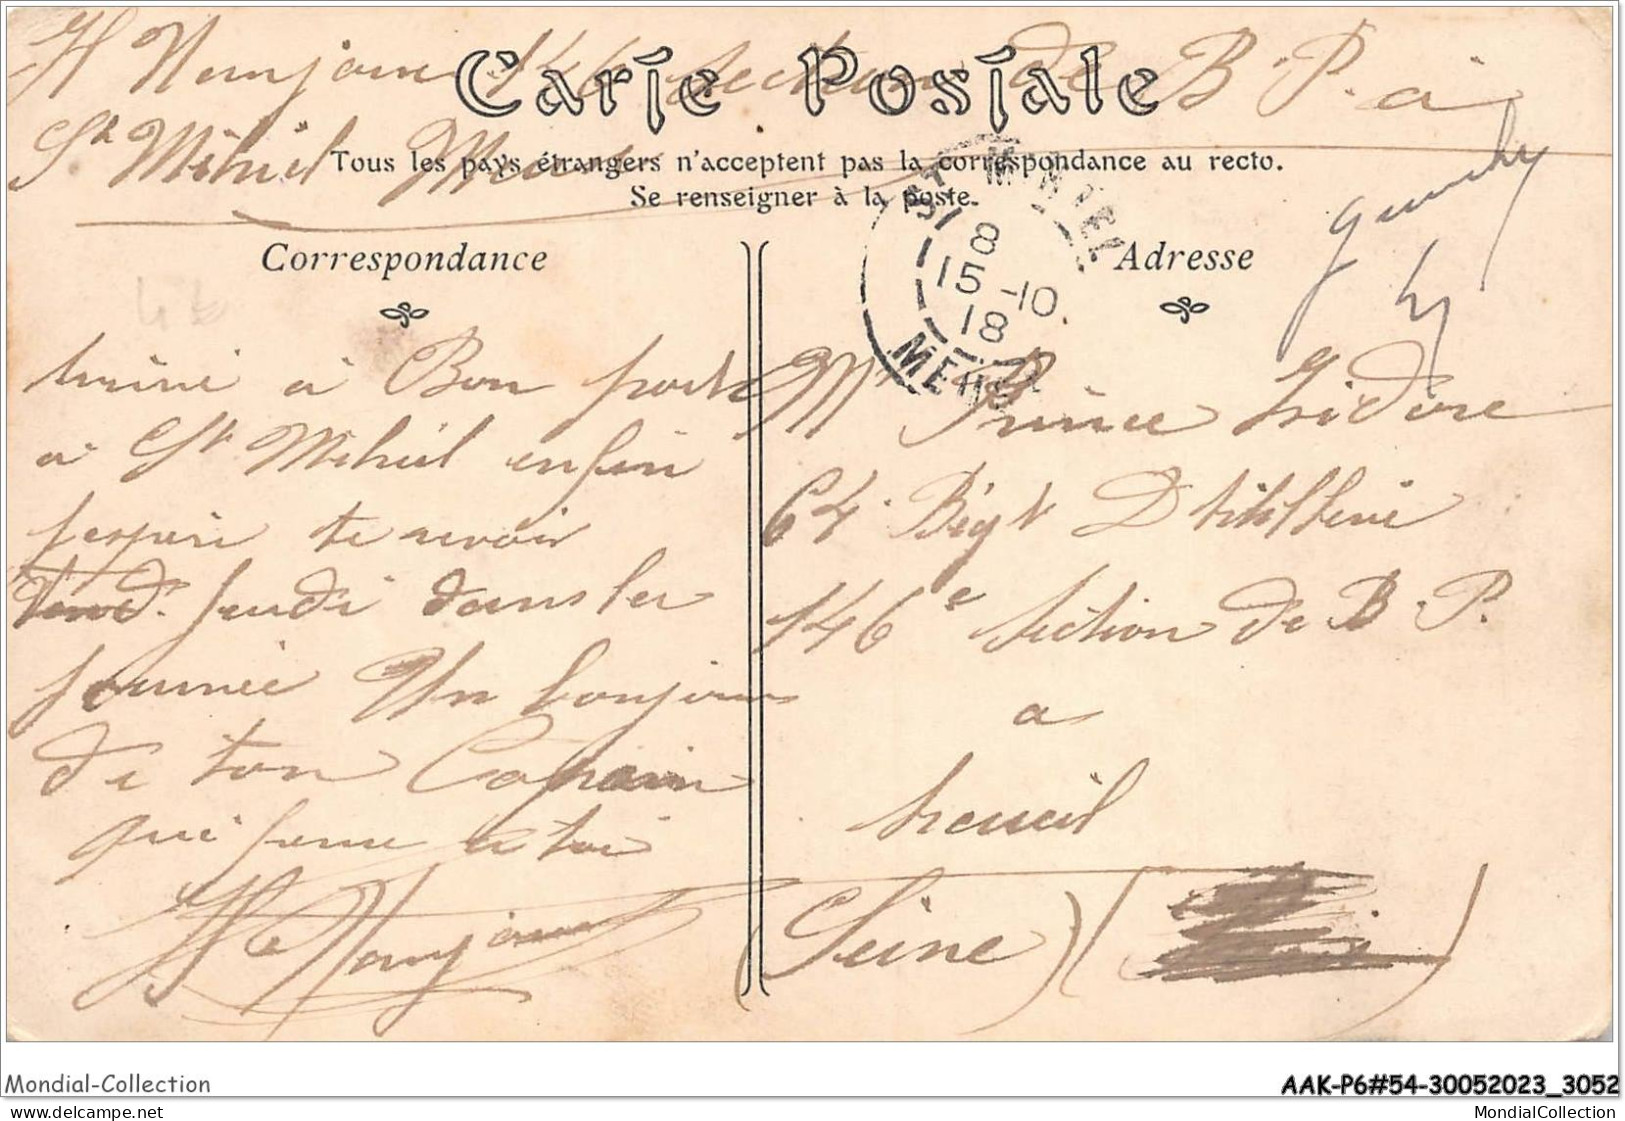 H Nonjain 146 section de B.P. à
St Mihiel Meuse
Carte Postale
Tous les pays étrangers n'acceptent pas la correspondance au recto.
Se renseigner à la poste.
ST MIHIEL
8
15-10
18
MEUSE
Correspondance
à Bon port
à St Mihiel enfin
jespere te revoir
Jeudi dans la
journée Un bonjour
de ton Copain
qui pense a toi
Adresse
Mr Prince Isidore
64 Regt Dartillerie
146e Section de B.P.
a
Arcueil
(Seine)
Mondial-Collection
AAK-P6#54-30052023_3052
MondialCollection